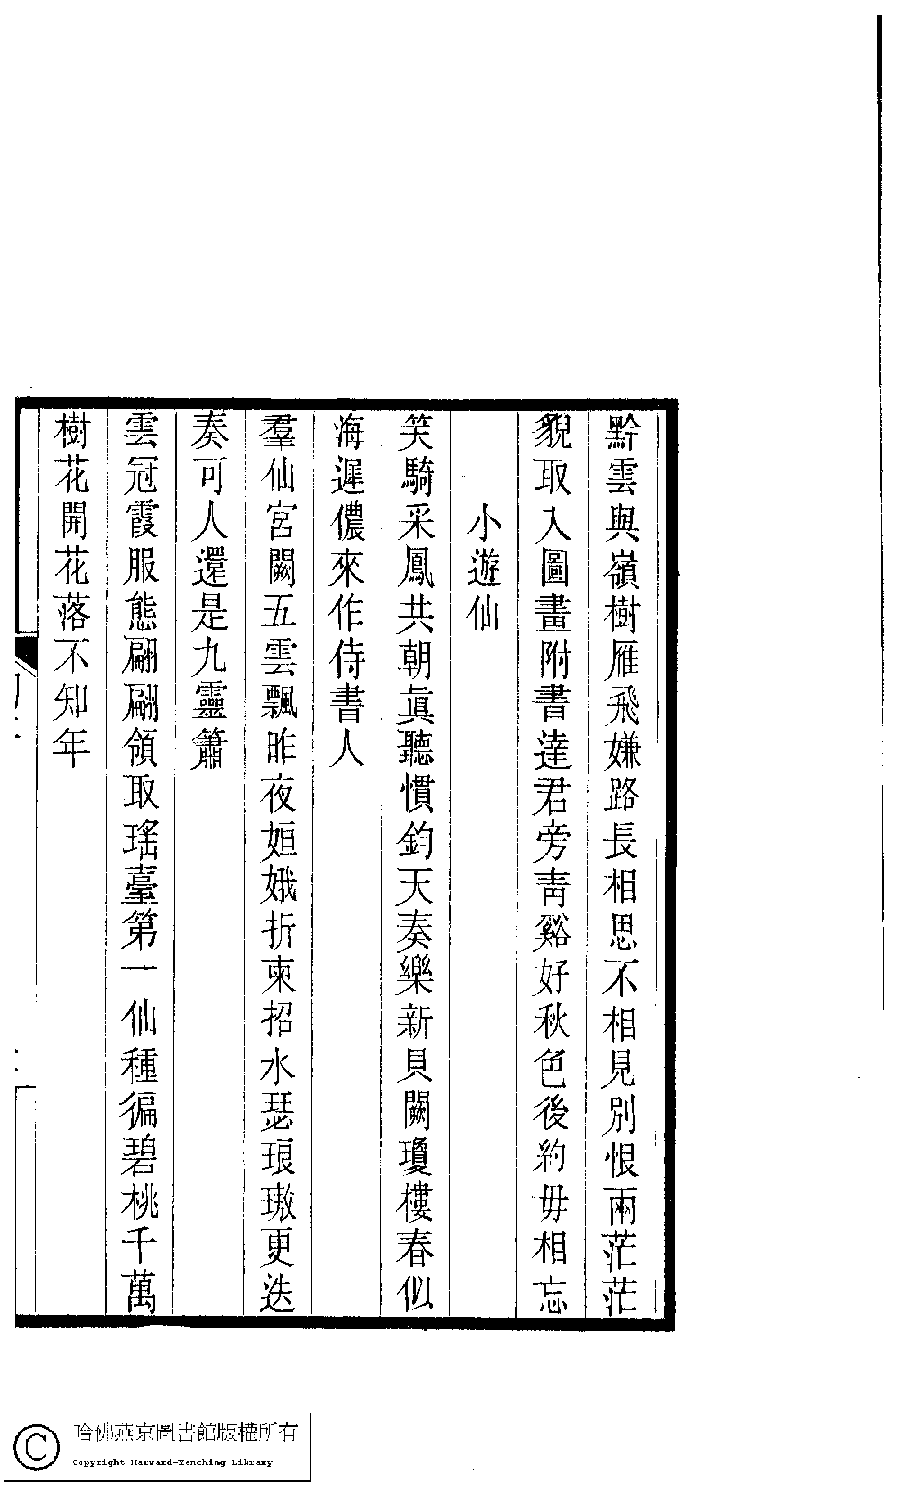 黔雲與嶺樹雁飛嫌路長相思不相見別恨兩茫茫
貌取入圖畫附書達君旁靑谿好秋色後約毋相忘
小遊仙
笑騎采鳳共朝眞聽慣鈞天奏樂新貝闕瓊樓春似
海遲儂來作侍書人
羣仙宮闕五雲飄昨夜姮娥折柬招水瑟琅璈更迭
奏可人還是九靈簫
雲冠霞服態翩翩領取瑤臺第一仙種徧碧桃千萬
樹花開花落不知年
哈佛燕京圖書館版權所有
Copyright Harvard-Yenching Library